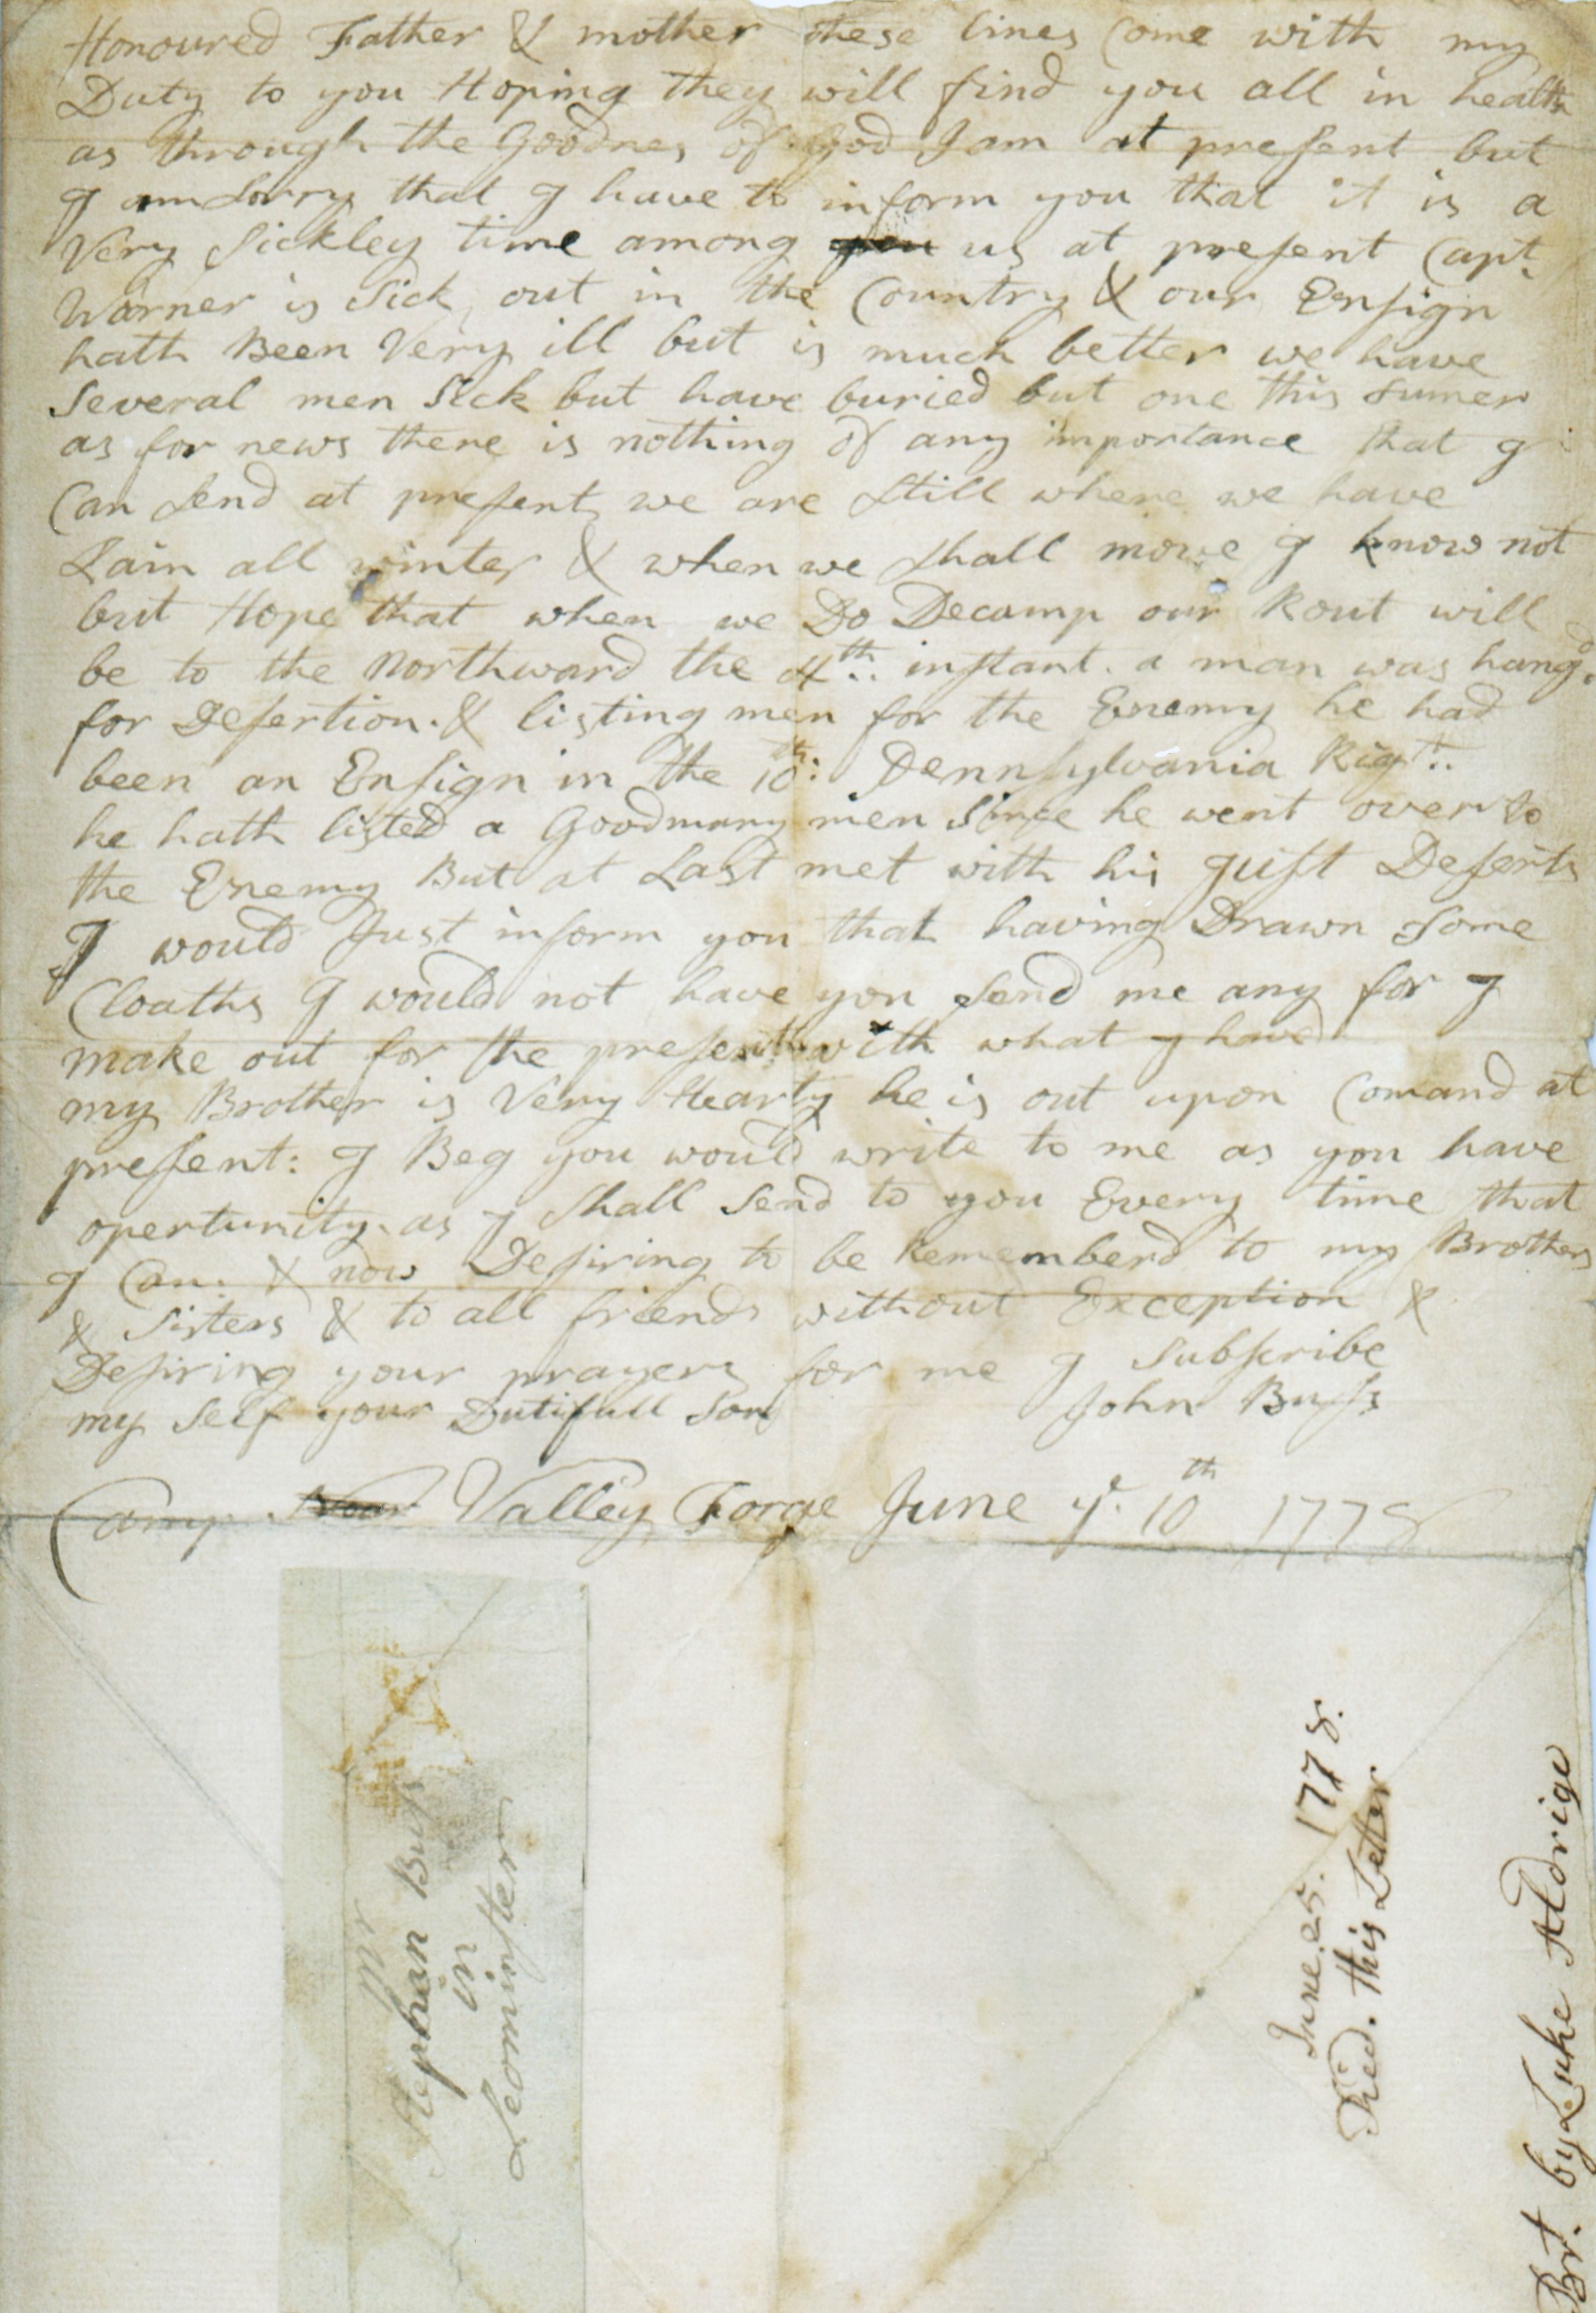 Honoured Father & mother these lines Come with my
Duty to you Hoping they will find you all in health
as through the Goodnes of God I am at present but
I am Sorry that I have to inform you that it is a
Very Sickley time among us at present Capt.
Warner is Sick out in the Country & our Ensign
hath Been Very ill but is much better we have
Several men Sick but have buried but one this Sumer
as for news there is nothing of any importance that I
Can Send at present we are Still where we have
Lain all winter & when we Shall move I know not
but Hope that when we Do Decamp our Rout will
be to the Northward the 4th.. instant. a man was hangd.
for Desertion. & listing men for the Enemy he had
been an Ensign in the 10th: Pennsylvania Rigt..
he hath listed a Goodmany men Since he went over to
the Enemy But at Last met with his Just Deserts
I would Just inform you that having Drawn Some
Cloaths I would not have you Send me any for I
make out for the present with what I have
my Brother is Very Hearty he is out upon Comand at
present: I Beg you would write to me as you have
opertunity. as I Shall Send to you Every time that
I Can. & now Desiring to be Rememberd to my Brothers
& Sisters & to all friends without Exception &
Desiring your prayers for me I Subscribe
my Self your Dutifull Son John Buss
Camp Near Valley Forge June ye. 10th 1778
Mr
Stephan Buss
in
Leominster
June. 25. 1778.
Recd. this Letter
Br. by Luke Aldrige